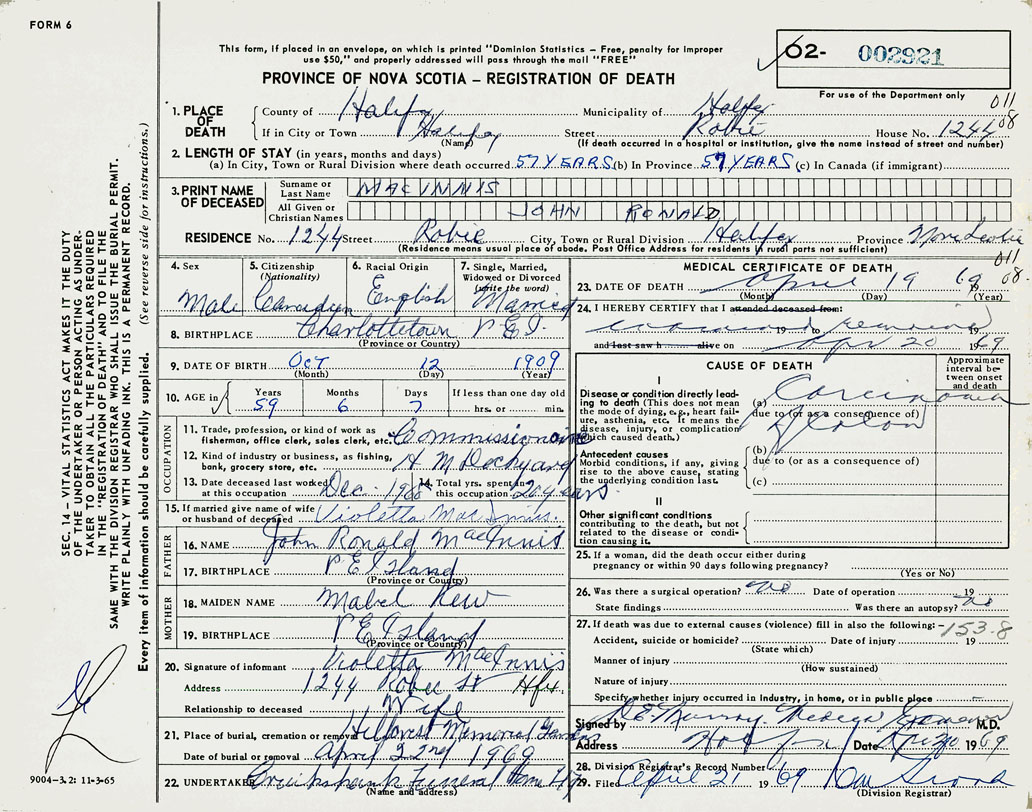 FORM 6
This form, if placed in an envelope, on which is printed "Dominion Statistics – Free, penalty for improper
use $50," and properly addressed will pass through the mail "FREE"
PROVINCE OF NOVA SCOTIA – REGISTRATION OF DEATH
02- 002921
For use of the Department only
011
08
1. PLACE OF DEATH
County of Halifax Municipality of Halifax
If in City or Town Halifax Street Robie House No. 1244
(Name) (If death occurred in a hospital or institution, give the name instead of street and number)
2. LENGTH OF STAY (in years, months and days)
(a) In City, Town or Rural Division where death occurred 57 YEARS (b) In Province 57 YEARS (c) In Canada (if immigrant)
3. PRINT NAME OF DECEASED
Surname or Last Name MACINNIS
All Given or Christian Names JOHN RONALD
RESIDENCE No. 1244 Street Robie City, Town or Rural Division Halifax Province Nova Scotia
(Residence means usual place of abode. Post Office Address for residents in rural parts not sufficient)
011
08
4. Sex Male
5. Citizenship (Nationality) Canadian
6. Racial Origin English
7. Single, Married, Widowed or Divorced (write the word) Married
8. BIRTHPLACE Charlottetown P.E.I.
(Province or Country)
9. DATE OF BIRTH Oct 12 1909
(Month) (Day) (Year)
10. AGE in Years 59 Months 6 Days 7 If less than one day old hrs. or min.
OCCUPATION
11. Trade, profession, or kind of work as fisherman, office clerk, sales clerk, etc. Commissionaire
12. Kind of industry or business, as fishing, bank, grocery store, etc. H M Dockyard
13. Date deceased last worked at this occupation Dec. 14. Total yrs. spent in this occupation 20 years.
15. If married give name of wife or husband of deceased Violetta MacInnis.
FATHER
16. NAME John Ronald MacInnis
17. BIRTHPLACE P E Island
(Province or Country)
MOTHER
18. MAIDEN NAME Mabel Kew
19. BIRTHPLACE P E Island
(Province or Country)
20. Signature of informant Violetta MacInnis
Address 1244 Robie St Hfx.
Relationship to deceased Wife
21. Place of burial, cremation or removal Memorial Gardens
Date of burial or removal April 22nd 1969
22. UNDERTAKER Cruikshank Funeral Home Hfx
(Name and address)
MEDICAL CERTIFICATE OF DEATH
23. DATE OF DEATH April 19 69
(Month) (Day) (Year)
24. I HEREBY CERTIFY that I attended deceased from:
examined 19 to 19
and last saw h alive on Apr 20 1969
CAUSE OF DEATH
Approximate interval between onset and death
I
Disease or condition directly leading to death (This does not mean the mode of dying, e.g., heart failure, asthenia, etc. It means the disease, injury, or complication which caused death.)
(a) Carcinoma
due to (or as a consequence of)
of Colon
Antecedent causes
Morbid conditions, if any, giving rise to the above cause, stating the underlying condition last.
(b)
due to (or as a consequence of)
(c)
II
Other significant conditions contributing to the death, but not related to the disease or condition causing it.
25. If a woman, did the death occur either during pregnancy or within 90 days following pregnancy?
(Yes or No)
26. Was there a surgical operation? No Date of operation 19
State findings Was there an autopsy? No
27. If death was due to external causes (violence) fill in also the following: –153.8
Accident, suicide or homicide? Date of injury 19
(State which)
Manner of injury
(How sustained)
Nature of injury
Specify whether injury occurred in industry, in home, or in public place
Signed by D.E. Murray Medical Examiner M.D.
Address Halifax Date Apr 20 1969
28. Division Registrar's Record Number
29. Filed April 21 1969
(Division Registrar)
SEC. 14 – VITAL STATISTICS ACT MAKES IT THE DUTY
OF THE UNDERTAKER OR PERSON ACTING AS UNDER-
TAKER TO OBTAIN ALL THE PARTICULARS REQUIRED
IN THE "REGISTRATION OF DEATH" AND TO FILE THE
SAME WITH THE DIVISION REGISTRAR WHO SHALL ISSUE THE BURIAL PERMIT.
WRITE PLAINLY WITH UNFADING INK. THIS IS A PERMANENT RECORD.
Every item of information should be carefully supplied. (See reverse side for instructions.)
9004-3.2: 11-3-65